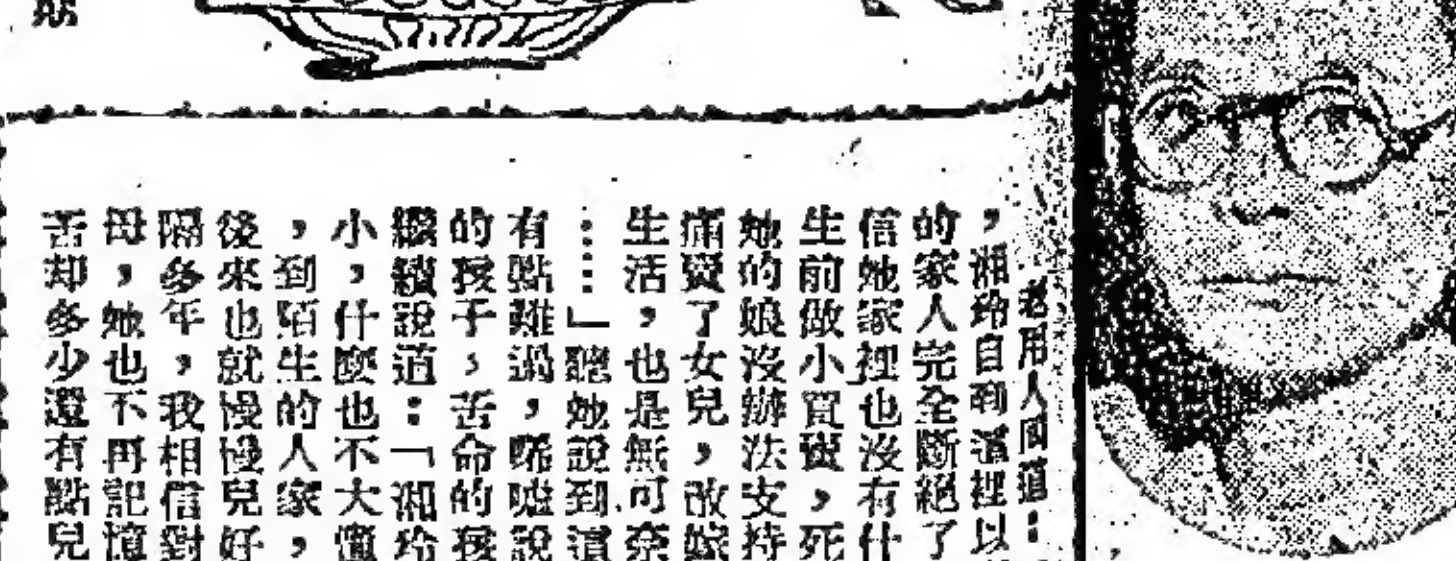 老用人回道：
，湘玲自到這裡以
的家人完全斷絕了
信她家裡也沒有什
生前做小買賣，死
她的娘沒辦法支持
痛賣了女兒，改嫁
生活，也是無可奈
……」聽她說到這
有點難過，唏噓說
的孩子，苦命的孩
繼續說道：「湘玲
小，什麼也不大懂
，到陌生的人家，
後來也就慢慢兒好
隔多年，我相信對
母，她也不再記憶
苦却多少還有點兒